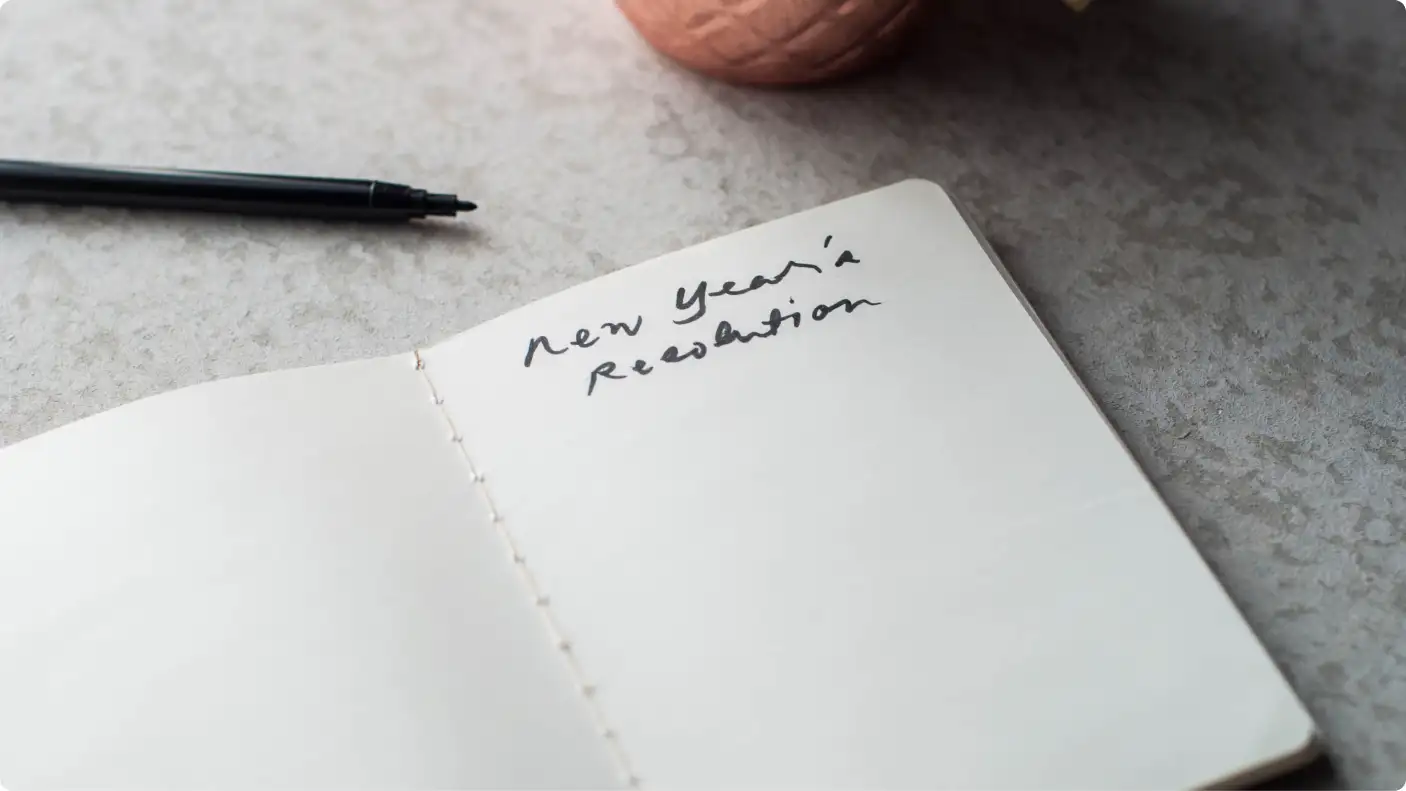 New Year's
Resolution